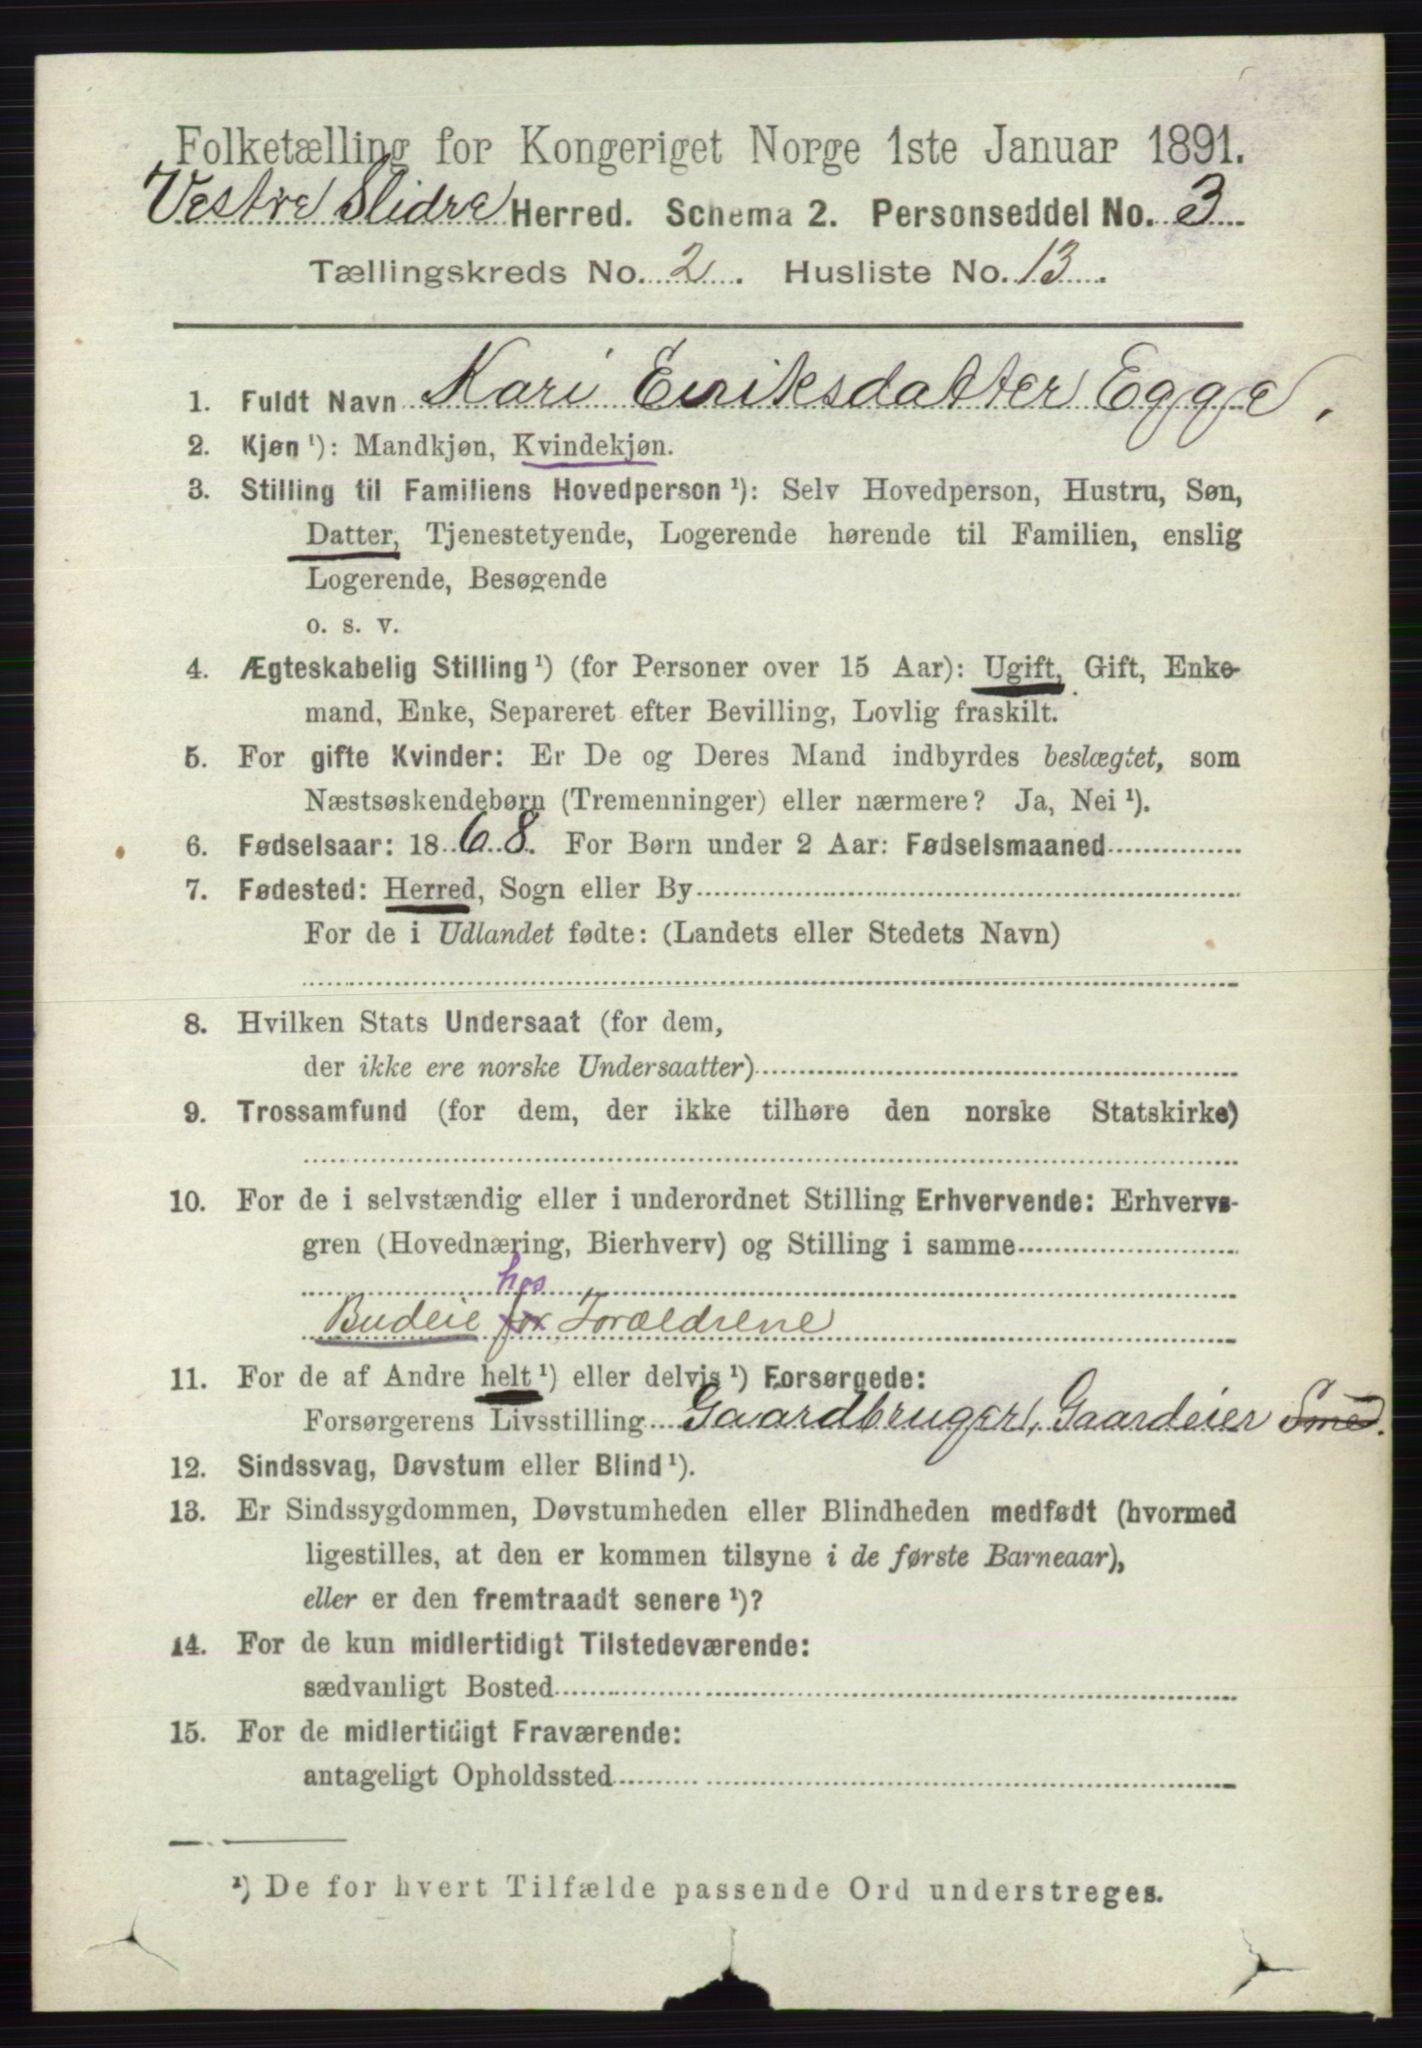 Folketælling for Kongeriget Norge 1ste Januar 1891.
Vestre Slidre Herred. Schema 2. Personseddel No. 3
Tællingskreds No. 2. Husliste No. 13.
1. Fuldt Navn Kari Eriksdatter Egge.
2. Kjøn ¹): Mandkjøn, Kvindekjøn.
3. Stilling til Familiens Hovedperson ¹): Selv Hovedperson, Hustru, Søn,
Datter, Tjenestetyende, Logerende hørende til Familien, enslig
Logerende, Besøgende
o. s. v.
4. Ægteskabelig Stilling ¹) (for Personer over 15 Aar): Ugift, Gift, Enke-
mand, Enke, Separeret efter Bevilling, Lovlig fraskilt.
5. For gifte Kvinder: Er De og Deres Mand indbyrdes beslægtet, som
Næstsøskendebørn (Tremenninger) eller nærmere? Ja, Nei ¹).
6. Fødselsaar: 1868. For Børn under 2 Aar: Fødselsmaaned
7. Fødested: Herred, Sogn eller By
For de i Udlandet fødte: (Landets eller Stedets Navn)
8. Hvilken Stats Undersaat (for dem,
der ikke ere norske Undersaatter)
9. Trossamfund (for dem, der ikke tilhøre den norske Statskirke)
10. For de i selvstændig eller i underordnet Stilling Erhvervende: Erhvervs-
gren (Hovednæring, Bierhverv) og Stilling i samme
hos
Budeie for Forældrene
11. For de af Andre helt ¹) eller delvis ¹) Forsørgede:
Forsørgerens Livsstilling Gaardbruger, Gaardeier Smed.
12. Sindssvag, Døvstum eller Blind ¹).
13. Er Sindssygdommen, Døvstumheden eller Blindheden medfødt (hvormed
ligestilles, at den er kommen tilsyne i de første Barneaar),
eller er den fremtraadt senere ¹)?
14. For de kun midlertidigt Tilstedeværende:
sædvanligt Bosted
15. For de midlertidigt Fraværende:
antageligt Opholdssted
¹) De for hvert Tilfælde passende Ord understreges.